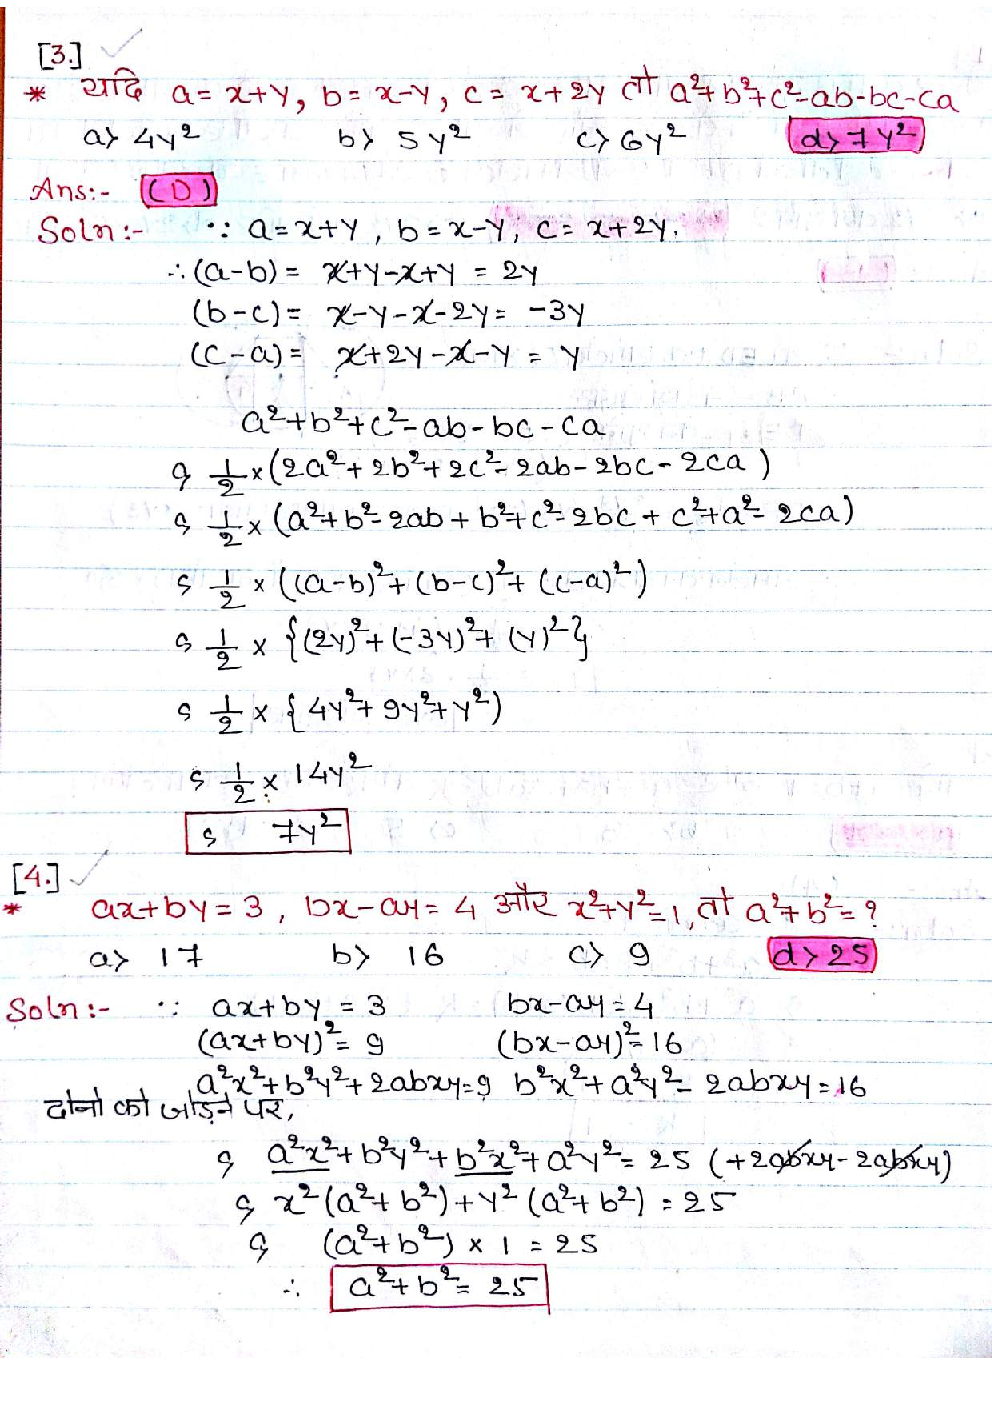 [3.]
* यदि a = x+y, b = x-y, c = x+2y तो a²+b²+c²-ab-bc-ca
a> 4y² b> 5y² c> 6y² d> 7y²
Ans:- (D)
Soln:- ∵ a=x+y, b=x-y, c= x+2y.
∴(a-b)= x+y-x+y = 2y
(b-c)= x-y-x-2y= -3y
(c-a)= x+2y-x-y = y
a²+b²+c²-ab-bc-ca
⇒ 1/2 × (2a²+2b²+2c²-2ab-2bc-2ca)
⇒ 1/2 × (a²+b²-2ab+b²+c²-2bc+c²+a²-2ca)
⇒ 1/2 × ((a-b)²+(b-c)²+(c-a)²)
⇒ 1/2 × {(2y)²+(-3y)²+(y)²}
⇒ 1/2 × {4y²+9y²+y²)
⇒ 1/2 × 14y²
⇒ 7y²
[4.]
* ax+by=3, bx-ay=4 और x²+y²=1, तो a²+b²=?
a> 17 b> 16 c> 9 d> 25
Soln:- ∵ ax+by=3 bx-ay=4
(ax+by)²=9 (bx-ay)²=16
a²x²+b²y²+2abxy=9 b²x²+a²y²-2abxy=16
दोनो को जोड़ने पर,
⇒ a²x²+b²y²+b²x²+a²y²=25 (+2abxy-2abxy)
⇒ x²(a²+b²)+y²(a²+b²)=25
⇒ (a²+b²)×1=25
∴ a²+b²=25